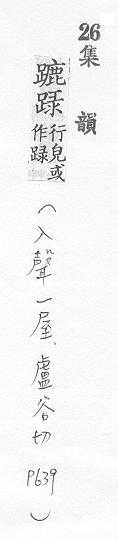 26集　韻
蹗䟿行皃或作䟿（入聲一屋、盧谷切 P639）